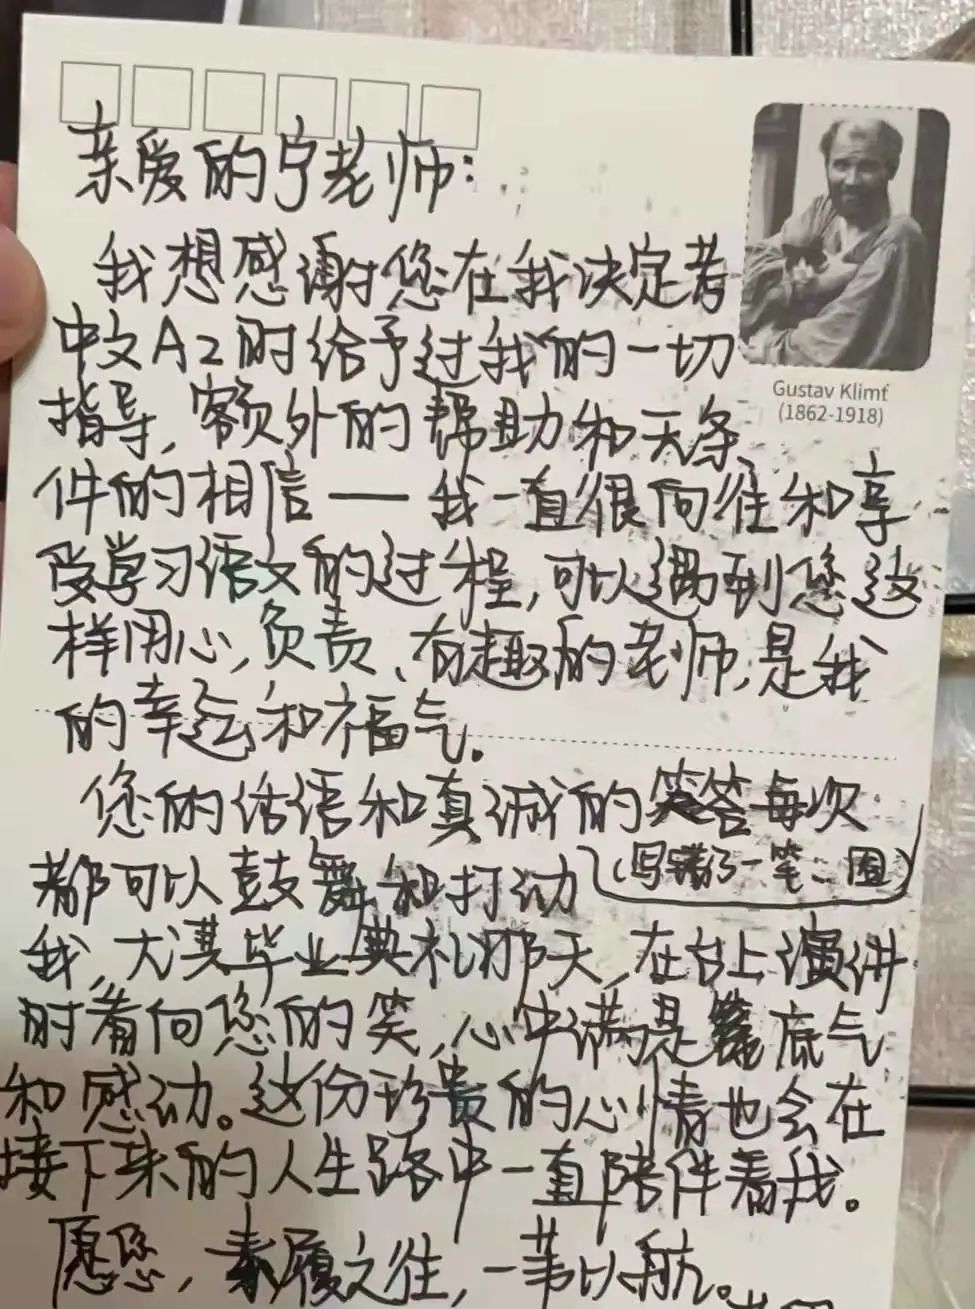 亲爱的宁老师:
我想感谢您在我决定考
中文A2时给予过我的一切
Gustav Klimt
(1862-1918)
指导,额外的帮助和无条
件的相信——我一直很向往和享
受学习语文的过程,可以遇到您这
样用心,负责、有趣的老师,是我
的幸运和福气.
您的话语和真诚的笑容每次
都可以鼓舞和打动
(写错了一笔:囧)
我,尤其毕业典礼那天,在台上演讲
时看向您的笑,心中满是底气
和感动。这份珍贵的心情也会在
接下来的人生路中一直陪伴着我。
愿您,素履之往,一苇以航。